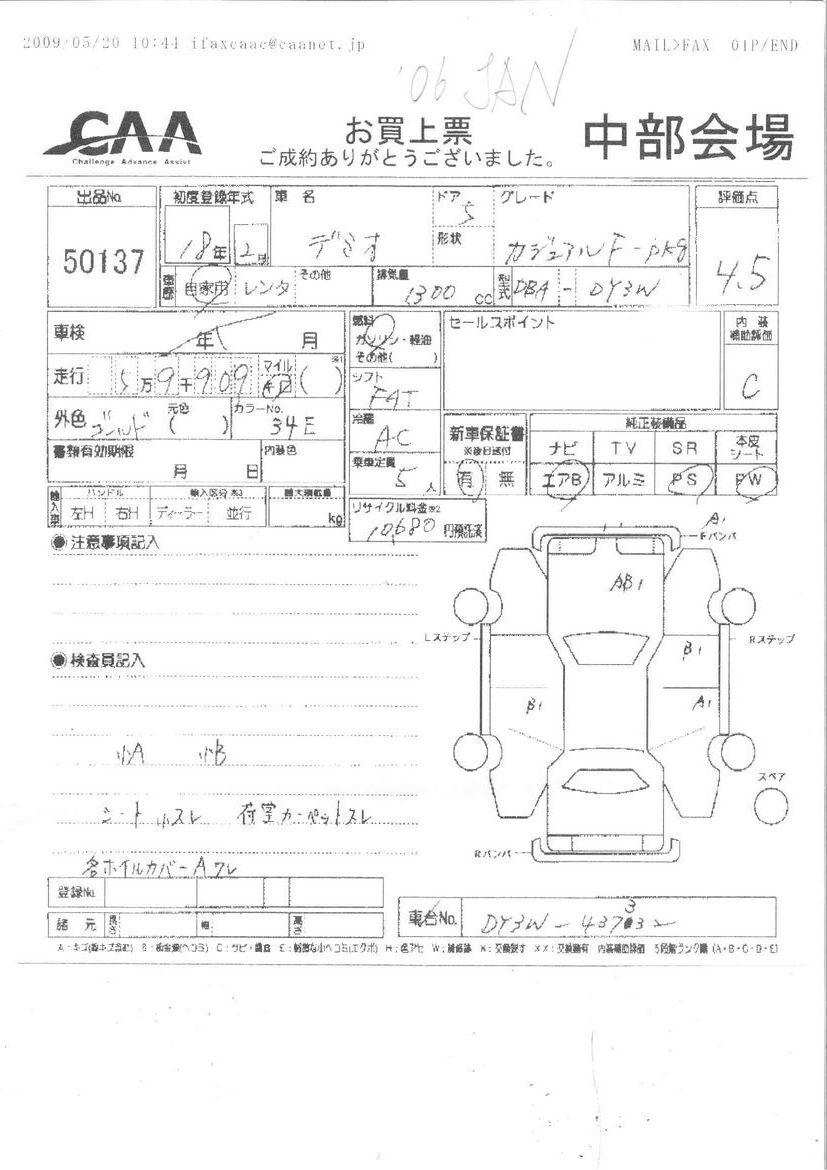 2009/05/20 10:44 ifaxcaac@caanet.jp MAIL>FAX 01P/END
'06 JAN
CAA
Challenge Advance Assist
お買上票
ご成約ありがとうございました。
中部会場
出品No. 初度登録年式 車名 ドア 5 グレード 評価点
50137 18年 2月 デミオ 形状 カジュアルF-pkg 4.5
車歴 自家用 レンタ その他 排気量 1300 cc 型式 DBA - DY3W
車検 年 月 燃料 ガソリン・軽油 その他( ) セールスポイント 内装補助評価
走行 5万9千909 マイル キロ ( ) ※1 シフト FAT C
外色 ゴールド 元色 ( ) カラーNo. 34E 冷房 AC 新車保証書 ※後日送付 純正装備品
ナビ TV SR 本皮シート
書類有効期限 月 日 内装色 乗車定員 5人 有 無 エアB アルミ PS PW
輸入車 ハンドル 左H 右H 輸入区分※3 ディーラー 並行 最大積載量 kg リサイクル料金※2 10680 円預託済
◉注意事項記入
A1 Fバンパ
AB1
Lステップ Rステップ
◉検査員記入 B1
B1 A1
小A 小B
スペア
シート小スレ 荷室カーペットスレ
Rバンパ
各ホイルカバーAワレ
登録No.
諸元 長さ 幅 高さ 車台No. DY3W - 437032 3
A:キズ(線キズ含む) B: C:サビ・腐食 E: H:色アセ W:補修跡 X:交換要す XX:交換済有 内装補助評価 5段階ランク順 (A・B・C・D・E)